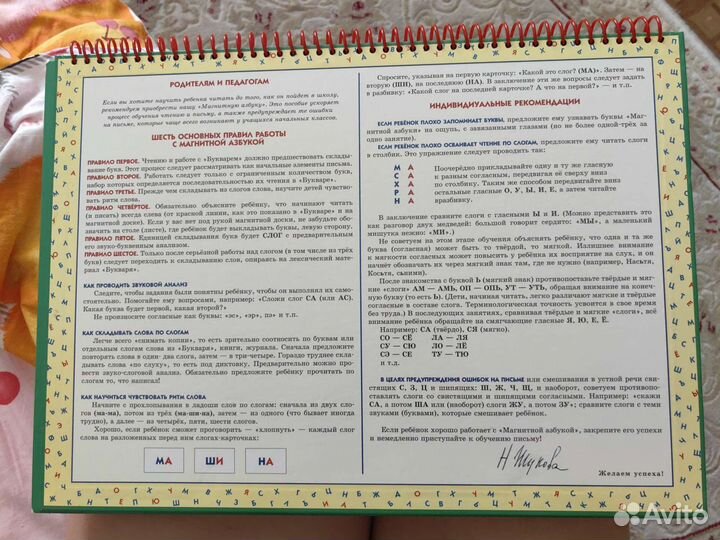 РОДИТЕЛЯМ И ПЕДАГОГАМ
Если вы хотите научить ребенка читать до того, как он пойдет в школу,
рекомендуем приобрести нашу «Магнитную азбуку». Это пособие ускоряет
процесс обучения чтению и письму, а также предупреждает те ошибки
на письме, которые чаще всего возникают у учащихся начальных классов.
ШЕСТЬ ОСНОВНЫХ ПРАВИЛ РАБОТЫ
С МАГНИТНОЙ АЗБУКОЙ
ПРАВИЛО ПЕРВОЕ. Чтению и работе с «Букварем» должно предшествовать складыва-
ние букв. Этот процесс следует рассматривать как начальные элементы письма.
ПРАВИЛО ВТОРОЕ. Работать следует только с ограниченным количеством букв,
набор которых определяется последовательностью их чтения в «Букваре».
ПРАВИЛО ТРЕТЬЕ. Прежде чем складывать из слогов слова, научите детей чувство-
вать ритм слова.
ПРАВИЛО ЧЕТВЁРТОЕ. Обязательно объясните ребёнку, что начинают читать
(и писать) всегда слева (от красной линии, как это показано в «Букваре» и на
магнитной доске). Если у вас нет под рукой магнитной доски, не забудьте обо-
значить на столе (листе), где ребёнок будет выкладывать буквы, левую сторону.
ПРАВИЛО ПЯТОЕ. Единицей складывания букв будет СЛОГ с предварительным
его звуко-буквенным анализом.
ПРАВИЛО ШЕСТОЕ. Только после серьёзной работы над слогом (в том числе из трёх
букв) следует переходить к складыванию слов, опираясь на лексический мате-
риал «Букваря».
КАК ПРОВОДИТЬ ЗВУКОВОЙ АНАЛИЗ
Следите, чтобы задания были понятны ребёнку, чтобы он выполнял их само-
стоятельно. Помогайте ему вопросами, например: «Сложи слог СА (или АС).
Какая буква будет первой, какая второй?».
Не произносите согласные как буквы: «эс», «эр», пэ» и т.п.
КАК СКЛАДЫВАТЬ СЛОВА ПО СЛОГАМ
Легче всего «снимать копии», то есть зрительно соотносить по буквам или
отдельным слогам слова из «Букваря», книги, журнала. Сначала предложите
повторять слова в один-два слога, затем — в три-четыре. Гораздо труднее склады-
вать слова «по слуху», то есть под диктовку. Предварительно можно про-
вести звуко-слоговой анализ. Обязательно предложите ребёнку прочитать по
слогам то, что написал!
КАК НАУЧИТЬСЯ ЧУВСТВОВАТЬ РИТМ СЛОВА
Начните с прохлопывания в ладоши слов по слогам: сначала из двух сло-
гов (ма-ма), потом из трёх (ма-ши-на), затем — из одного (что бывает иногда
трудно), а далее — из четырёх, пяти, шести слогов.
Хорошо, если ребёнок сможет проговорить — «хлопнуть» — каждый слог
слова на разложенных перед ним слогах-карточках:
МА ШИ НА
Спросите, указывая на первую карточку: «Какой это слог? (МА)». Затем — на
вторую (ШИ), на последнюю (НА). В заключение эти же вопросы следует задать
в разбивку: «Какой слог на последней карточке? А что на первой?» — и т.п.
ИНДИВИДУАЛЬНЫЕ РЕКОМЕНДАЦИИ
ЕСЛИ РЕБЁНОК ПЛОХО ЗАПОМИНАЕТ БУКВЫ, предложите ему узнавать буквы «Маг-
нитной азбуки» на ощупь, с завязанными глазами (но не более одной-трёх за
одно занятие).
ЕСЛИ РЕБЁНОК ПЛОХО ОСВАИВАЕТ ЧТЕНИЕ ПО СЛОГАМ, предложите ему читать слоги
в столбик. Это упражнение следует проводить так:
М А Поочерёдно прикладывайте одну и ту же гласную
С А к разным согласным, передвигая её сверху вниз
Х А по столбику. Таким же способом передвигайте вниз
Р А остальные гласные О, У, Ы, И, Е, а затем читайте
Н А вразбивку.
В заключение сравните слоги с гласными Ы и И. (Можно представить это
как разговор двух медведей: большой говорит сердито: «МЫ», а маленький
мишутка нежно: «МИ».)
Не советуем на этом этапе обучения объяснять ребёнку, что одна и та же
буква (согласная) может быть то твёрдой, то мягкой. Излишнее внимание
к мягкости согласных может повысить у ребёнка их восприятие на слух, и он
начнёт обозначать их через мягкий знак там, где не нужно (например, Насьтя,
Косьтя, сьними).
После знакомства с буквой Ь (мягкий знак) противопоставьте твёрдые и мяг-
кие «слоги» АМ — АМЬ, ОП — ОПЬ, УТ — УТЬ, обращая внимание на конеч-
ную букву (то есть Ь). (Дети, начиная читать, легко различают мягкие и твёрдые
согласные в составе слога. Терминологическая точность усвоится в свое время
без труда.) В последующих занятиях, сравнивая твёрдые и мягкие «слоги», всё
внимание ребёнка обращайте на смягчающие гласные Я, Ю, Е, Ё.
Например: СА (твёрдо), СЯ (мягко).
СО — СЁ ЛА — ЛЯ
СУ — СЮ ЛО — ЛЁ
СЭ — СЕ ТУ — ТЮ
и т.д.
В ЦЕЛЯХ ПРЕДУПРЕЖДЕНИЯ ОШИБОК НА ПИСЬМЕ или смешивания в устной речи сви-
стящих С, З, Ц и шипящих: Ш, Ж, Ч, Щ, и наоборот, советуем противопо-
ставлять слоги со свистящими и шипящими согласными. Например: «скажи
СА, а потом ША или (наоборот) слоги ЖУ, а потом ЗУ»; сравните слоги с теми
звуками (буквами), которые смешивает ребёнок.
Если ребёнок хорошо работает с «Магнитной азбукой», закрепите его успехи
и немедленно приступайте к обучению письму!
Н Жукова
Желаем успеха!
Avito